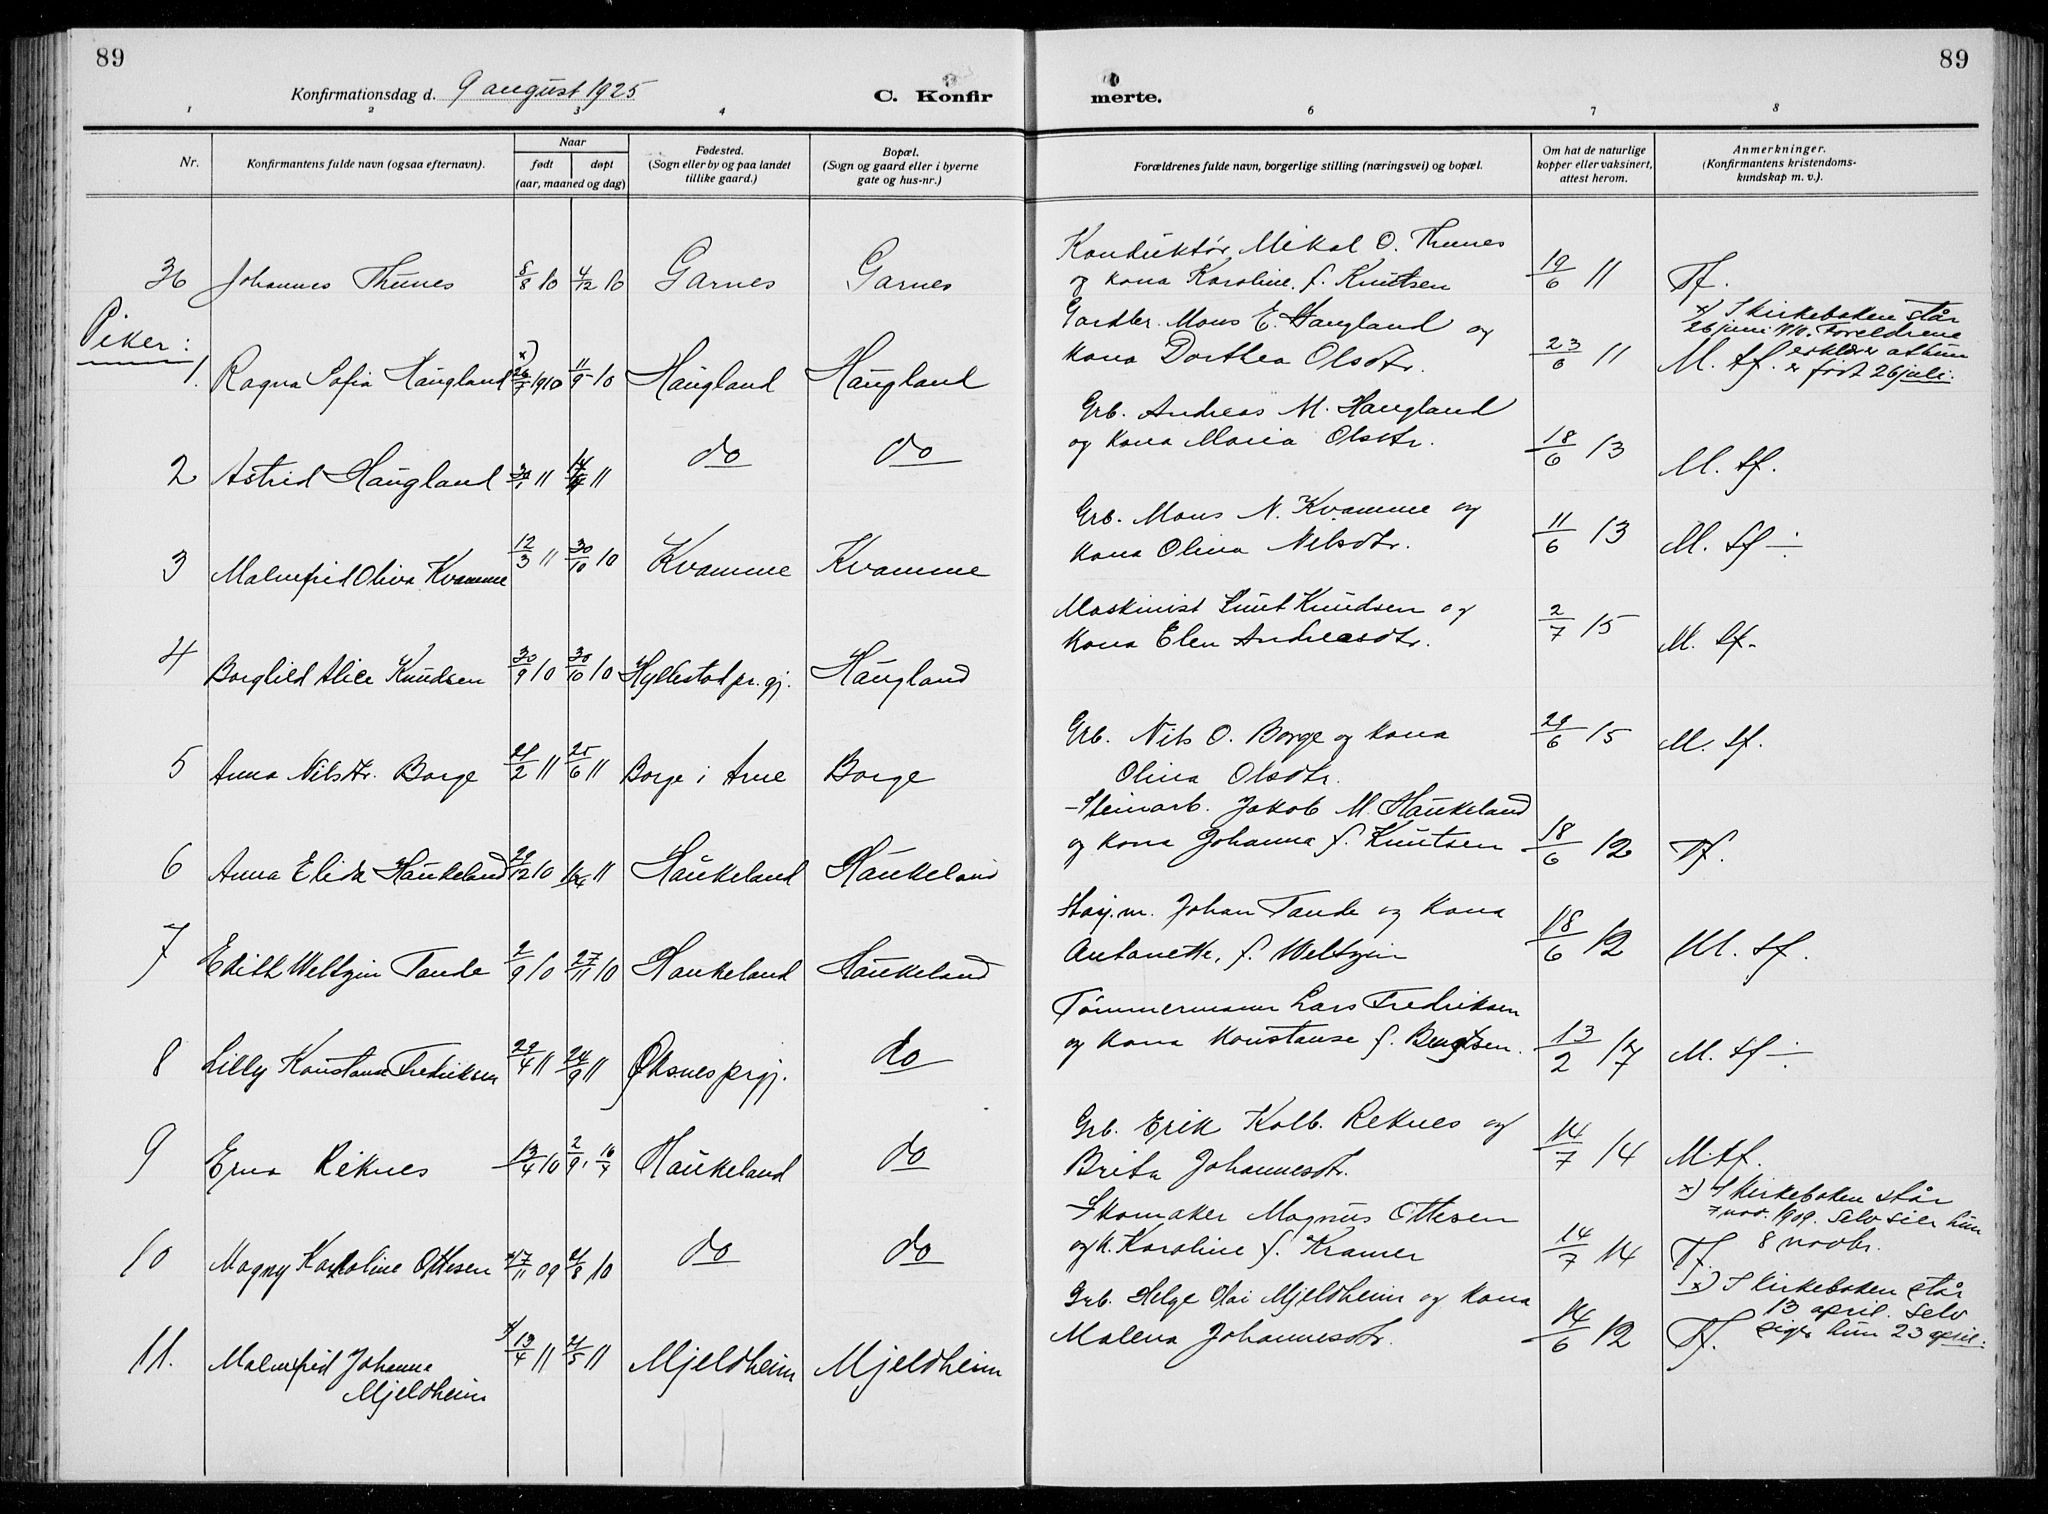 89
89
Konfirmationsdag d. 9 august 1925
C. Konfir
merte.
1 2 3 4 6 7 8
Nr.
Konfirmantens fulde navn (ogsaa efternavn).
Naar
født
døpt
(aar, maaned og dag)
Fødested.
(Sogn eller by og paa landet
tillike gaard.)
Bopæl.
(Sogn og gaard eller i byerne
gate og hus-nr.)
Forældrenes fulde navn, borgerlige stilling (næringsvei) og bopæl.
Om hat de naturlige
kopper eller vaksinert,
attest herom.
Anmerkninger.
(Konfirmantens kristendoms-
kundskap m. v.).
36 Johannes Thunes 8/8 10 4/12 10 Garnes Garnes
Konduktør Mikal O. Thunes
og kona Karoline f. Knutsen 19/6 11 Tf.
Piker:
1. Ragna Sofia Haugland x) 26/7 1910 11/9 10 Haugland Haugland
Gardbr. Mons E. Haugland og
kona Dorthea Olsdtr. 23/6 11 M. tf.
x) I kirkeboken står
26 juni 1910. Foreldrene
erklærer at hun
er født 26 juli.
2 Astrid Haugland 30/1 11 11 do do
Grb. Andreas M. Haugland
og kona Maria Olsdtr. 18/6 13 M. tf.
3 Malmfrid Oliva Kvamme 12/3 11 30/10 10 Kvamme Kvamme
Grb. Mons N. Kvamme og
kona Olina Nilsdtr. 11/6 13 M. tf
4 Borghild Alice Knudsen 30/9 10 30/10 10 Hyllestad pr.gj. Haugland
Maskinist Knudsen og
kona Elen Andreasdtr. 2/7 15 M. tf.
5 Anna Nilsdtr. Borge 21/2 11 25/6 11 Borge i Arne Borge
Grb. Nils O. Borge og kona
Olina Olsdtr. 29/6 15 M. tf.
6 Anna Elida Haukeland 29/12 10 16/4 11 Haukeland Haukeland
Steinarb. Jakob M. Haukeland
og kona Johanna f. Knutsen 18/6 12 Tf.
7 Edith Weltzin Tande 2/9 10 27/11 10 Haukeland Haukeland
Johan Tande og kona
Antonette, f. Weltzin 18/6 12 M. tf.
8 Lilly Konstanse Fredriksen 29/4 11 24/9 11 Øksnes prgj. do
Tømmermann Lars Fredriksen
og kona Konstanse f. Bengtsen. 13/2 17 M. tf
9 Erna Reknes 13/4 10 2/9, 16/7 Haukeland do
Grb. Erik Kolb. Reknes og
Brita Johannesdtr. 14/7 14 M. tf.
10 Magny Karoline Ottesen x) 7/11 09 21/8 10 do do
Skomaker Magnus Ottesen
og k. Karoline f. Kramer 14/7 14 Tf.
x) I kirkeboken står
7 nov. 1909. Selv sier hun
8 novbr.
11. Malmfrid Johanne
Mjeldheim x) 13/4 11 21/5 11 Mjeldheim Mjeldheim
Grb. Helge Mjeldheim og kona
Malena Johannesdtr. 14/6 12 Tf.
x) I kirkeboken står
13 april. Selv
siger hun 23 april.